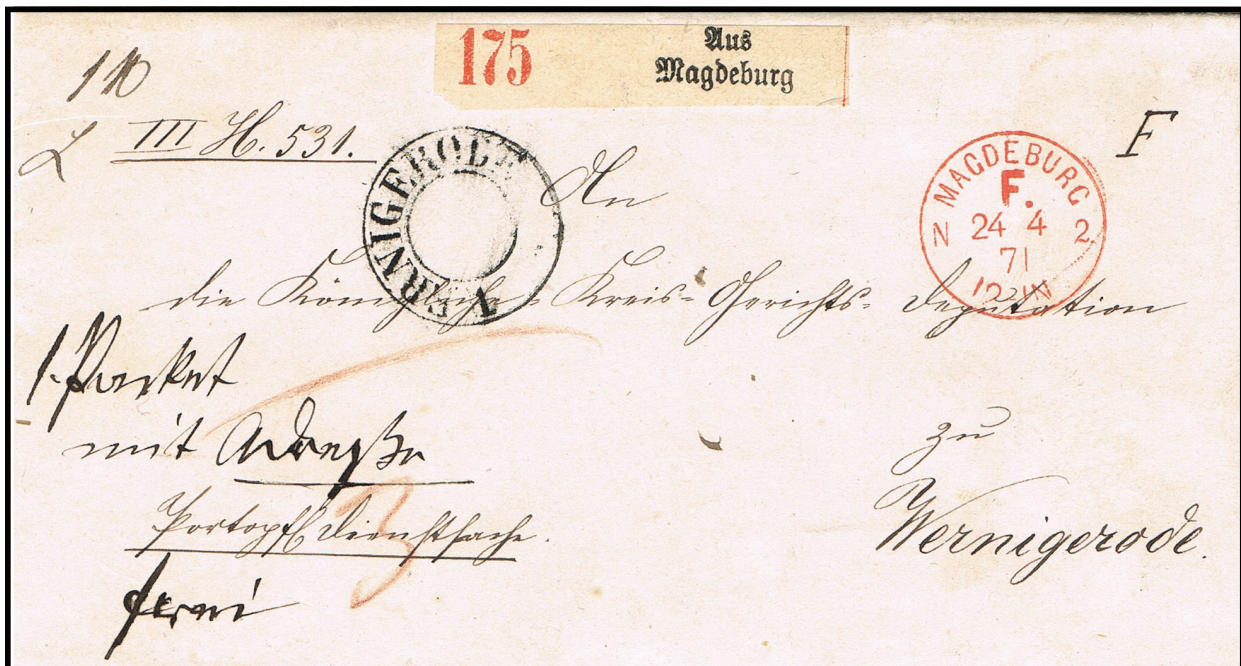 175 Aus
Magdeburg
III H. 531.
F
WERNIGERODE
An
MAGDEBURG
F.
N 24 4 2
71
12 1N
die Königliche Kreis-Gerichts-Deputation
1 Packet
mit Adreße
zu
Portopfl Dienstsache.
Wernigerode.
frei
3